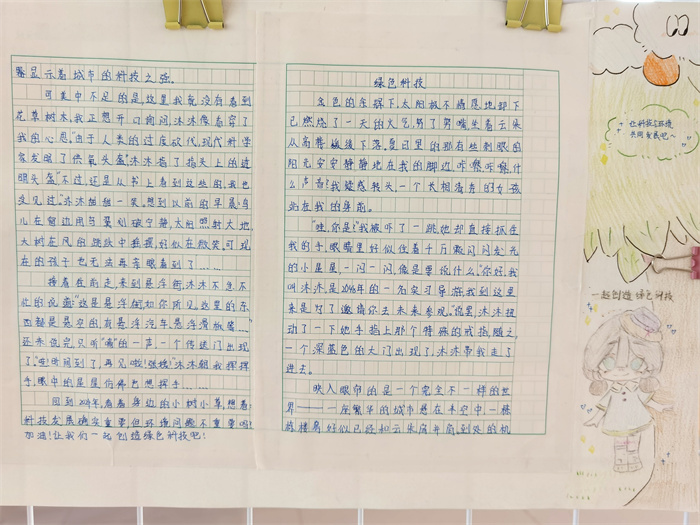 绿色科技
金色的余晖下,太阳极不情愿地卸下
已燃烧了一天的火气,努了努嘴坐着云朵
从高尊巍峨后下落。夏日里的那有些刺眼的
阳光安安静静地在我的脚边。咔嚓咔嚓,什
么声音?我疑惑转头,一个长相清秀的女孩
站在我的身前。
“哇,你是?”我被吓了一跳,她却直接抓住
我的手,眼睛里好似住着千万颗闪闪发光
的小星星,一闪一闪,像是要说什么。“你好,我
叫沐沐,是2096年的一名实习导游,我到这里
来是为了邀请你去未来参观。”说罢,沐沐扭
动了一下她手指上那个特殊的戒指,随之,
一个深蓝色的大门出现了,沐沐带我走了
进去。
映入眼帘的是一个完全不一样的世
界——一座繁华的城市悬在半空中,一栋
栋楼房好似已经和云朵肩并肩,到处的机
器显示着城市的科技之强。
可美中不足的是,这里我就没有看到
花草树木,我正想开口询问,沐沐像看穿了
我的心思,“由于人类的过度砍伐,现代科学
家发明了供氧头盔。”沐沐指了指头上的透
明头盔,“不过,还是从书上看到这些的,我也
没见过。”沐沐细细一笑。想以前的早晨,鸟
儿在窗边用鸟翼划破宁静,太阳照射大地,
大树在风的跳跃中摇摆,好似在微笑。可现
在的孩子也无法再亲眼看到了……
接着往前走,来到悬浮街,沐沐不急不
忙的说道:“这是悬浮街,如你所见,这里的东
西都是悬空的,有悬浮汽车、悬浮滑板等……”
还未说完,只听“嘀”的一声,一个传送门出现
了。“呀!时间到了,再见啦!张楠”沐沐朝我挥挥
手,眼中的星星仿佛也想挥手……
回到2024年,看着身边的小树小草,想着:
科技发展确实重要,但环境问题不重要吗?
加油!让我们一起创造绿色科技吧!
让科技与环境
共同发展吧~
一起创造绿色科技